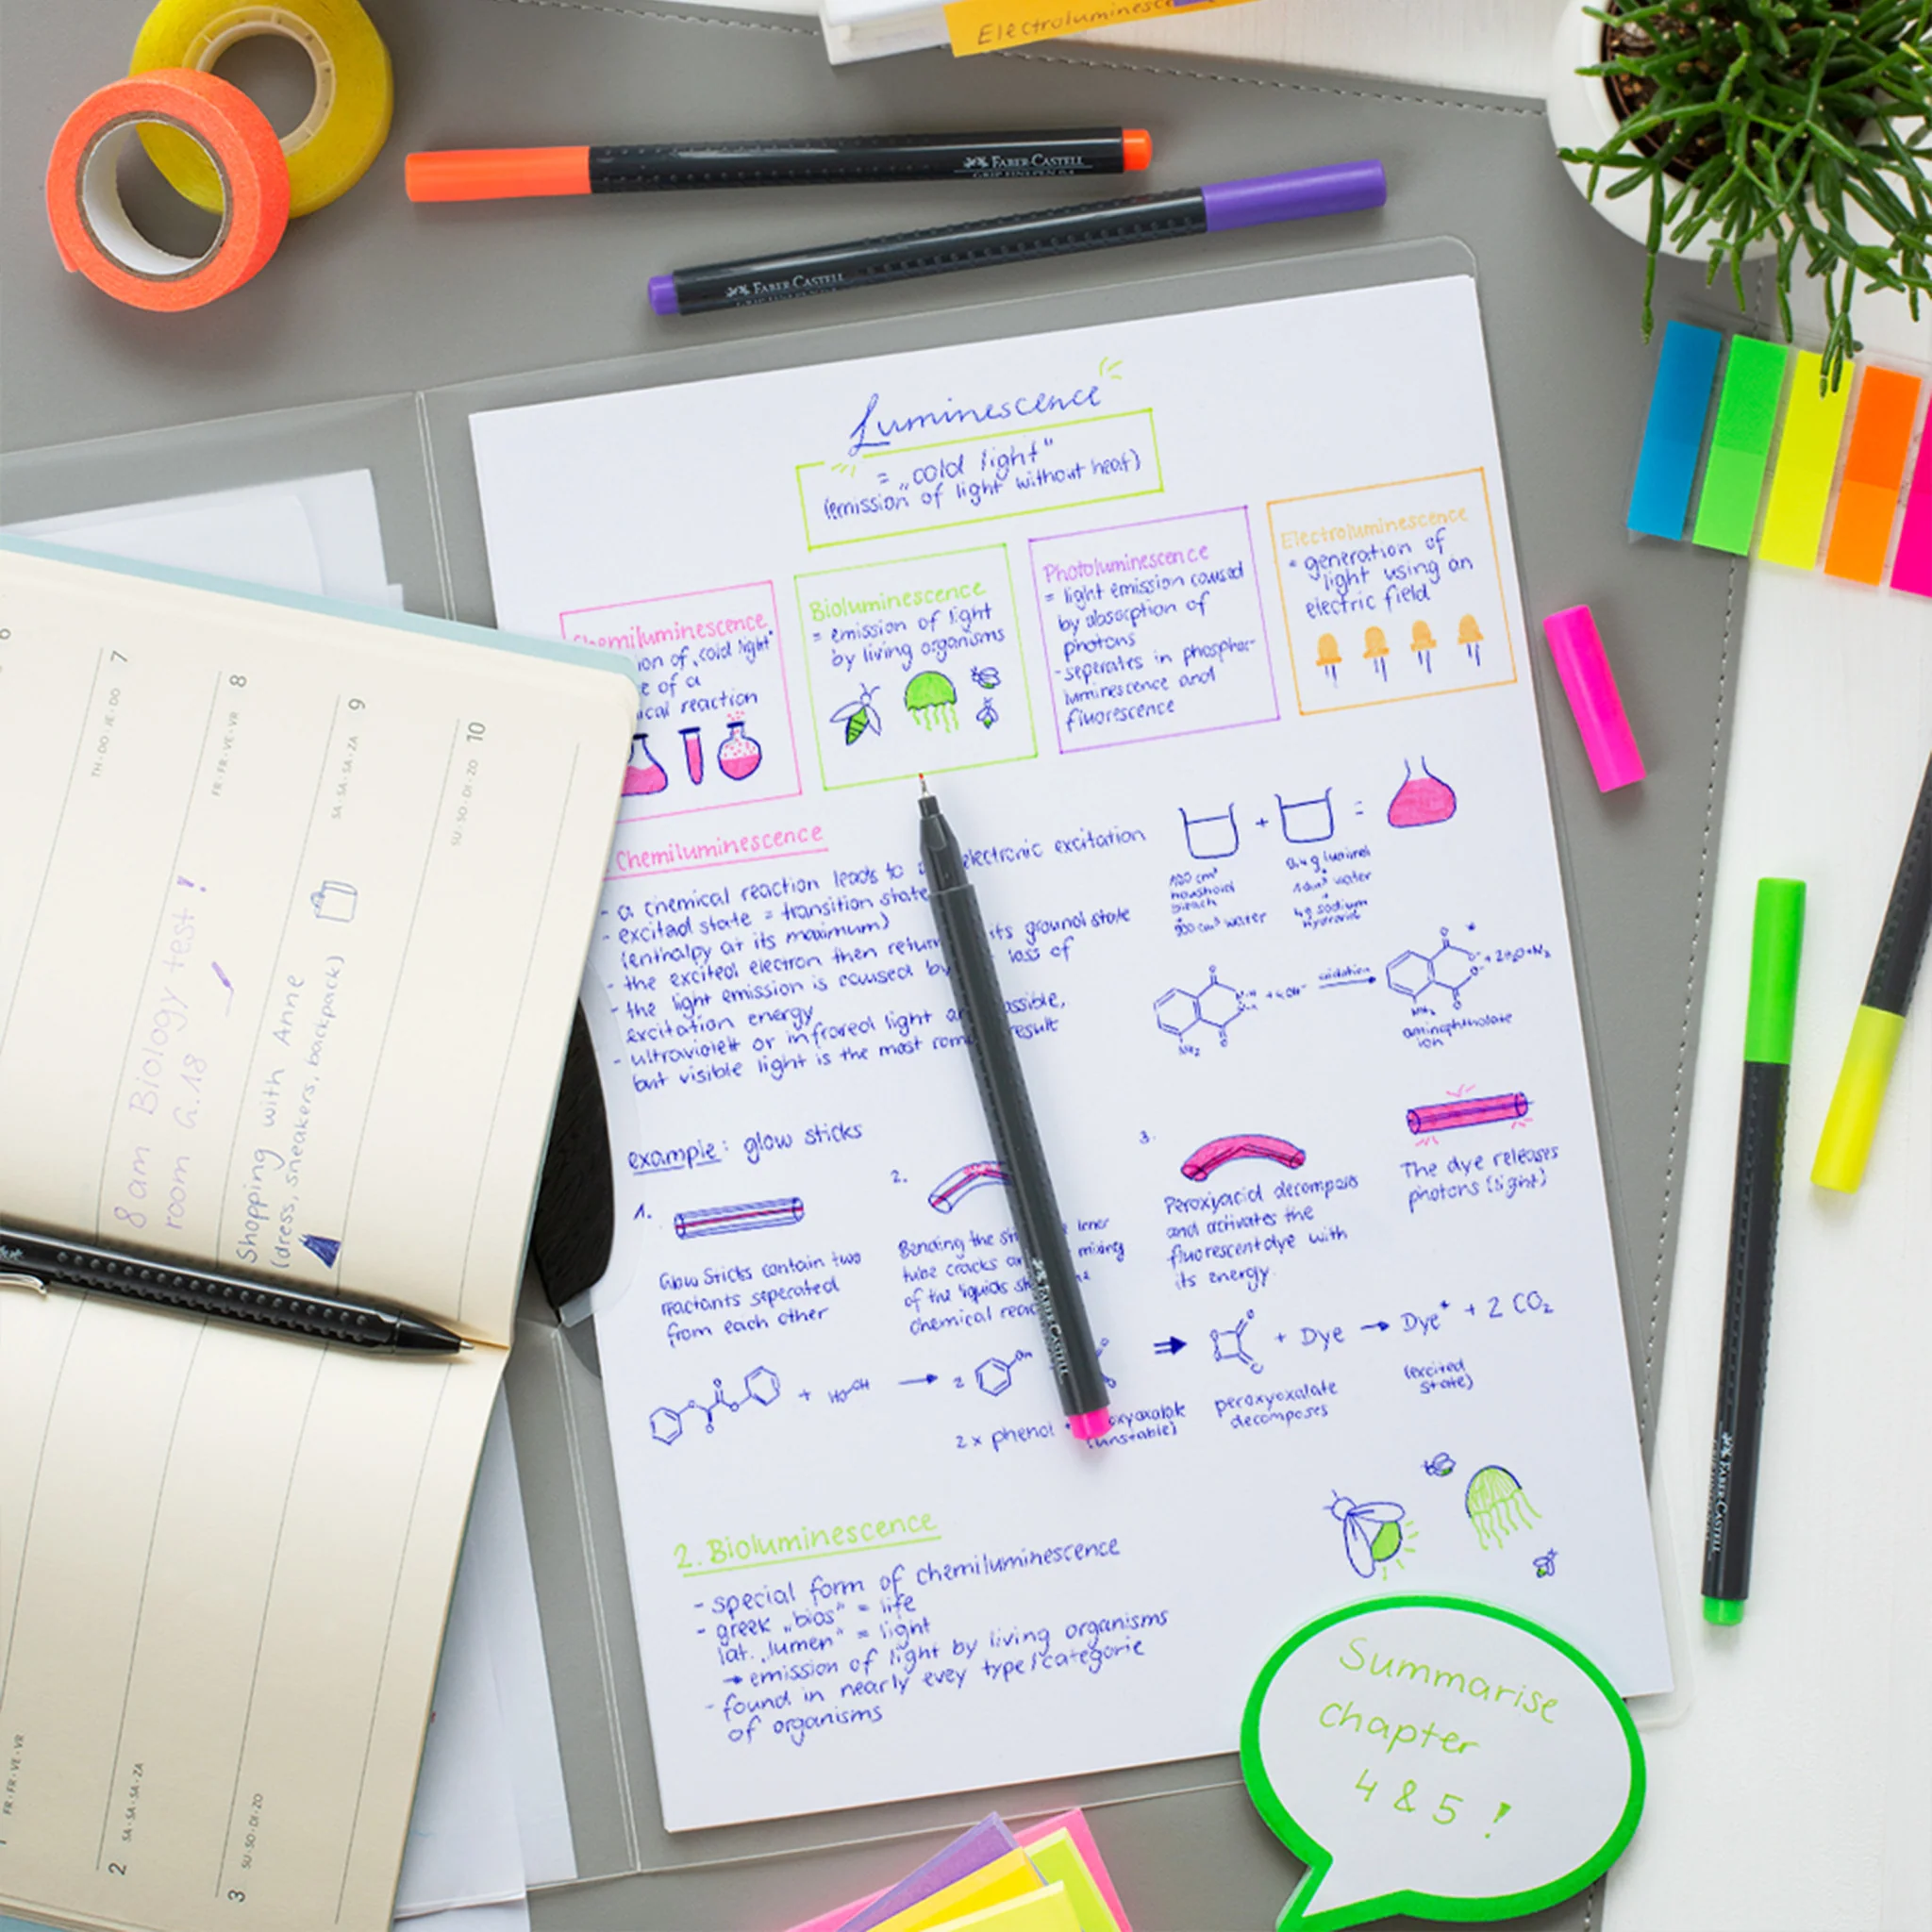 Electroluminesce
FABER-CASTELL
GRIP FINEPEN 0.4
FABER-CASTELL
Luminescence
= „cold light"
(emission of light without heat)
Chemiluminescence
ion of „cold light"
e of a
ical reaction
Bioluminescence
= emission of light
by living organisms
Photoluminescence
= light emission caused
by absorption of
photons
- seperates in phosphor-
luminescence and
fluorescence
Electroluminescence
= generation of
light using an
electric field
Chemiluminescence
- a chemical reaction leads to electronic excitation
- excited state = transition state
(enthalpy at its maximum)
- the excited electron then return its ground state
- the light emission is caused by loss of
excitation energy
- ultraviolett or infrared light a ossible,
but visible light is the most com result
+ =
100 cm³
houshold
bleach
+
900 cm³ water
0,4 g luminol
+
1 dm³ water
+
4g sodium
hydroxide
NH₂
oxidation
NH₂
aminophthalate
ion
example: glow sticks
1.
Glow Sticks contain two
reactants seperated
from each other
2.
Bending the st inner
tube cracks a mixing
of the liquids st
chemical reac
3.
Peroxyacid decomposs
and activates the
fluorescent dye with
its energy.
The dye releases
photons (light)
+ → 2
⇒ + Dye → Dye* + 2 CO₂
2x phenol + oxyoxalate
(unstable)
peroxyoxalate
decomposes
(excited
state)
2. Bioluminescence
- special form of chemiluminescence
- greek „bios" = life
lat. „lumen" = light
→ emission of light by living organisms
- found in nearly evey type/categorie
of organisms
Summarise
chapter
4 & 5 !
FABER-CASTELL
FABER-CASTELL
TH · DO · JE · DO 7
8 am Biology test!
room G.18
FR · FR · VE · VR 8
Shopping with Anne
(dress, sneakers, backpack)
SA · SA · SA · ZA 9
SU · SO · DI · ZO 10
1 FR · FR · VE · VR
2 SA · SA · SA · ZA
3 SU · SO · DI · ZO